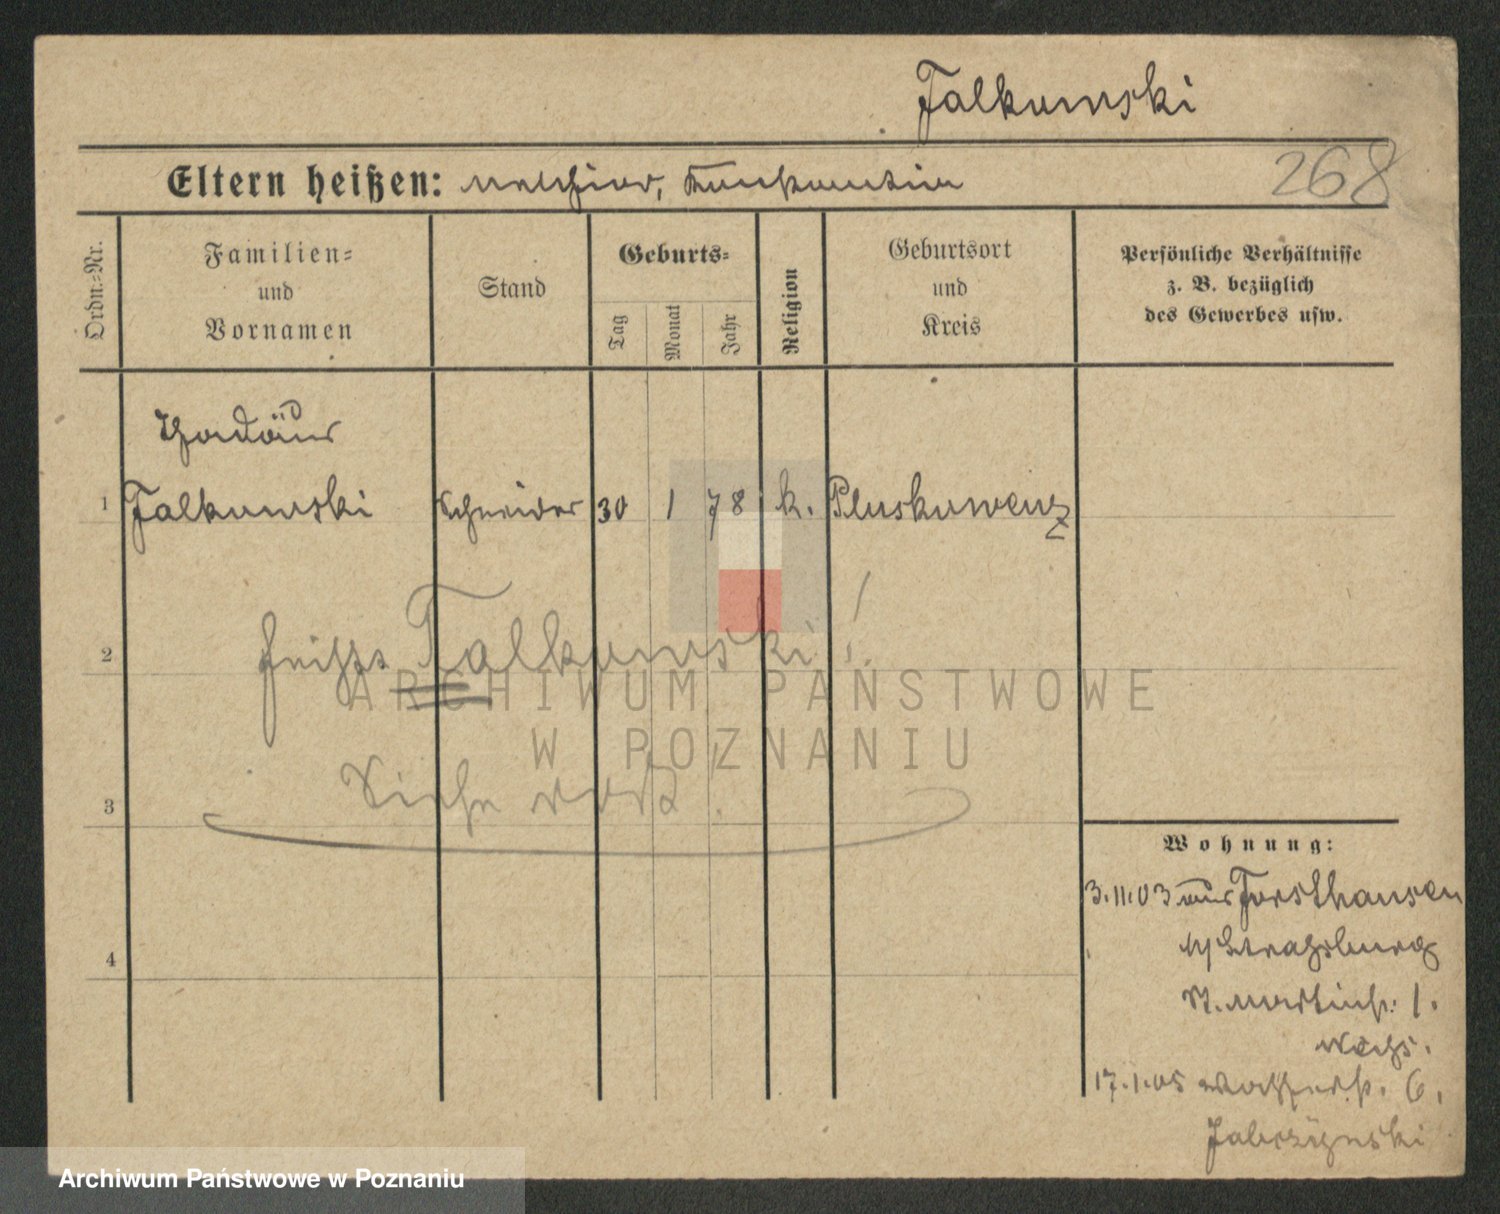 Falkowski
Eltern heißen: Melchior, Konstantia
268
Ordn.-Nr.
Familien-
und
Vornamen
Stand
Geburts-
Tag
Monat
Jahr
Religion
Geburtsort
und
Kreis
Persönliche Verhältnisse
z. B. bezüglich
des Gewerbes usw.
Thadäus
1 Falkowski Schneider 30 1 78 k. Pluskowenz
2 heißt Falkowski!
ARCHIWUM PAŃSTWOWE
W POZNANIU
Siehe dort.
3
Wohnung:
3.11.03 aus Forsthausen
Strassburg
4
St. Martinstr. 1.
17.1.05 6.
Jabczynski
Archiwum Państwowe w Poznaniu